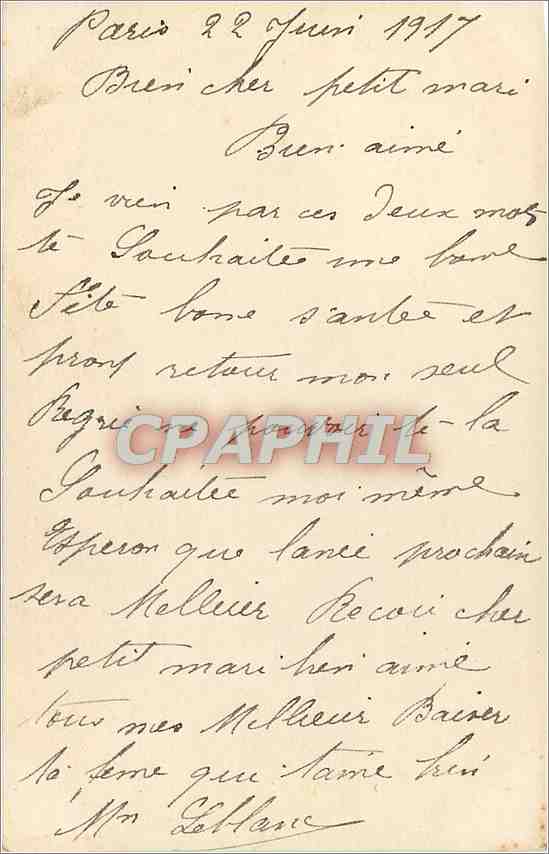 Paris 22 Juin 1917
Bien cher petit mari
Bien aimé
Je vien par ces deux mots
te Souhaitée une bone
Fête bone s'antée et
pront retour mon seul
Regrie ne pouvoir te la
CPAPHIL
Souhaitée moi même
Esperon que lanée prochain
sera Mellieur Recoi cher
petit mari bien aimé
tous mes Mellieur Baiser
ta feme qui taime bien
Mn Leblanc